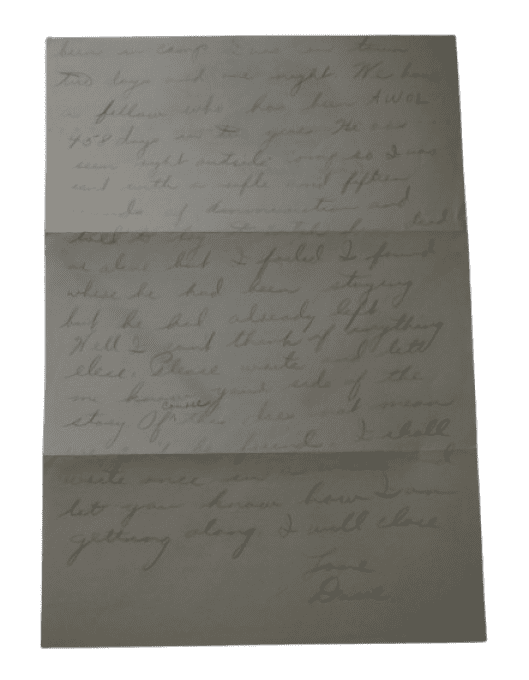 been in camp I was in town
two days and one night We have
a fellow who has been AWOL
458 days in two years He was
seen right outside camp so I was
sent with a rifle and fifteen
of ammunition and
told to
or alive but I failed I found
where he had been staying
but he had already left
Well I cant think of anything
else. Please write and let
me know your side of the
story Of course this does not mean
friend. I shall
write once in a
let you know how I am
getting along I will close
Love
Dave